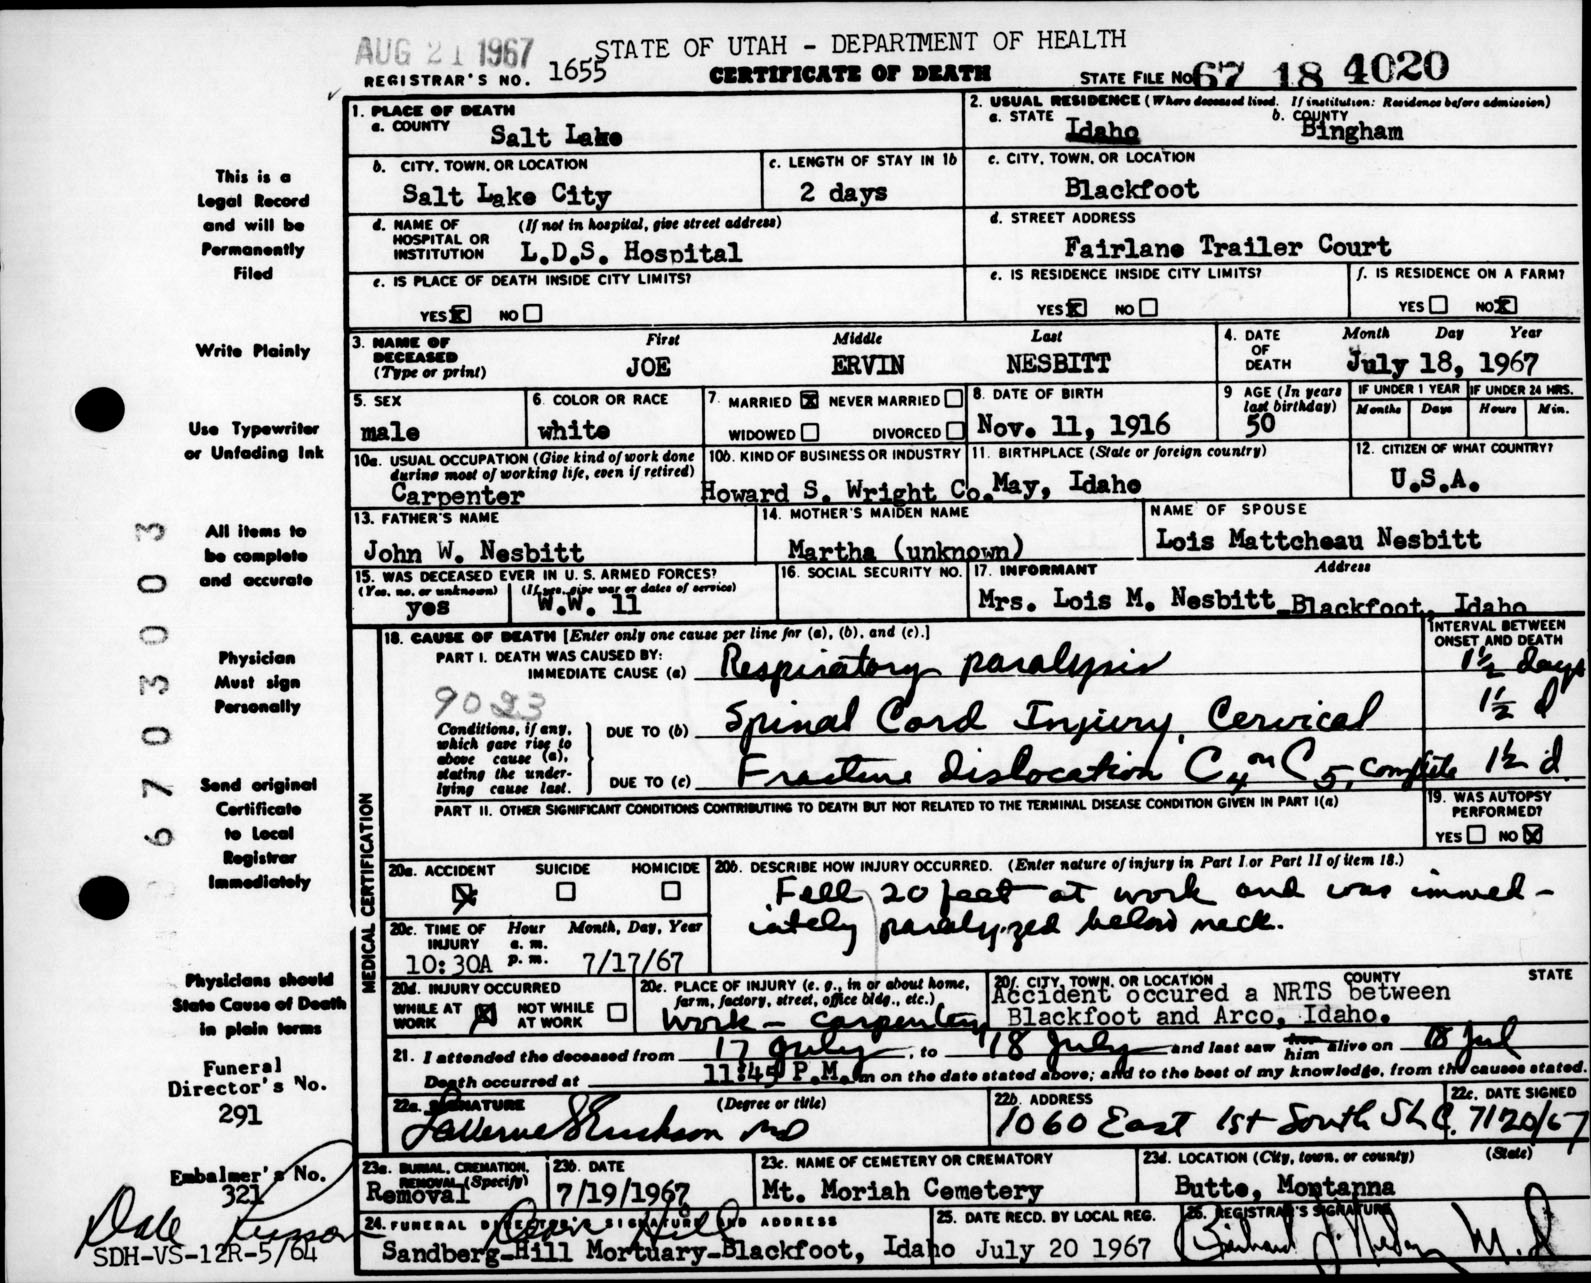 AUG 21 1967
STATE OF UTAH - DEPARTMENT OF HEALTH
REGISTRAR'S NO. 1655
CERTIFICATE OF DEATH
STATE FILE NO. 67 18 4020
1. PLACE OF DEATH
a. COUNTY Salt Lake
2. USUAL RESIDENCE (Where deceased lived. If institution: Residence before admission)
a. STATE Idaho b. COUNTY Bingham
b. CITY, TOWN, OR LOCATION Salt Lake City
c. LENGTH OF STAY IN 1b 2 days
c. CITY, TOWN, OR LOCATION Blackfoot
d. NAME OF HOSPITAL OR INSTITUTION (If not in hospital, give street address) L.D.S. Hospital
d. STREET ADDRESS Fairlane Trailer Court
e. IS PLACE OF DEATH INSIDE CITY LIMITS? YES X NO
e. IS RESIDENCE INSIDE CITY LIMITS? YES X NO
f. IS RESIDENCE ON A FARM? YES NO X
3. NAME OF DECEASED (Type or print) First JOE Middle ERVIN Last NESBITT
4. DATE OF DEATH Month Day Year July 18, 1967
5. SEX male
6. COLOR OR RACE white
7. MARRIED X NEVER MARRIED WIDOWED DIVORCED
8. DATE OF BIRTH Nov. 11, 1916
9 AGE (In years last birthday) 50
IF UNDER 1 YEAR Months Days
IF UNDER 24 HRS. Hours Min.
10a. USUAL OCCUPATION (Give kind of work done during most of working life, even if retired) Carpenter
10b. KIND OF BUSINESS OR INDUSTRY Howard S. Wright Co.
11. BIRTHPLACE (State or foreign country) May, Idaho
12. CITIZEN OF WHAT COUNTRY? U.S.A.
13. FATHER'S NAME John W. Nesbitt
14. MOTHER'S MAIDEN NAME Martha (unknown)
NAME OF SPOUSE Lois Mattcheau Nesbitt
15. WAS DECEASED EVER IN U. S. ARMED FORCES?
(Yes, no, or unknown) yes (If yes, give war or dates of service) W.W. 11
16. SOCIAL SECURITY NO.
17. INFORMANT Address
Mrs. Lois M. Nesbitt Blackfoot, Idaho
MEDICAL CERTIFICATION
18. CAUSE OF DEATH [Enter only one cause per line for (a), (b), and (c).]
INTERVAL BETWEEN ONSET AND DEATH
PART I. DEATH WAS CAUSED BY:
IMMEDIATE CAUSE (a) Respiratory paralysis 1½ days
9023
Conditions, if any, which gave rise to above cause (a), stating the underlying cause last.
DUE TO (b) Spinal Cord Injury, Cervical 1½ d
DUE TO (c) Fracture dislocation C4 on C5, complete 1½ d.
PART II. OTHER SIGNIFICANT CONDITIONS CONTRIBUTING TO DEATH BUT NOT RELATED TO THE TERMINAL DISEASE CONDITION GIVEN IN PART I(a)
19. WAS AUTOPSY PERFORMED? YES NO X
20a. ACCIDENT X SUICIDE HOMICIDE
20b. DESCRIBE HOW INJURY OCCURRED. (Enter nature of injury in Part I or Part II of item 18.)
Fell 20 feet at work and was immed-
iately paralyzed below neck.
20c. TIME OF INJURY Hour a. m. p. m. Month, Day, Year
10:30A 7/17/67
20d. INJURY OCCURRED
WHILE AT WORK X NOT WHILE AT WORK
20e. PLACE OF INJURY (e. g., in or about home, farm, factory, street, office bldg., etc.)
Work - carpentery
20f. CITY, TOWN, OR LOCATION COUNTY STATE
Accident occured a NRTS between
Blackfoot and Arco, Idaho.
21. I attended the deceased from 17 July, to 18 July and last saw her him alive on 18 Jul
Death occurred at 11:45 P.M. m on the date stated above; and to the best of my knowledge, from the causes stated.
22a. SIGNATURE (Degree or title)
LaVerne S Erickson MD
22b. ADDRESS 1060 East 1st South SLC.
22c. DATE SIGNED 7/20/67
23a. BURIAL, CREMATION, REMOVAL (Specify) Removal
23b. DATE 7/19/1967
23c. NAME OF CEMETERY OR CREMATORY Mt. Moriah Cemetery
23d. LOCATION (City, town, or county) (State) Butte, Montanna
24. FUNERAL DIRECTOR'S SIGNATURE AND ADDRESS
Sandberg-Hill Mortuary-Blackfoot, Idaho
25. DATE RECD. BY LOCAL REG. July 20 1967
26. REGISTRAR'S SIGNATURE
M.D
This is a
Legal Record
and will be
Permanently
Filed
Write Plainly
Use Typewriter
or Unfading Ink
All items to
be complete
and accurate
Physician
Must sign
Personally
Send original
Certificate
to Local
Registrar
Immediately
Physicians should
State Cause of Death
in plain terms
Funeral
Director's No.
291
Embalmer's No.
321
Dale
SDH-VS-12R-5/64
67030003